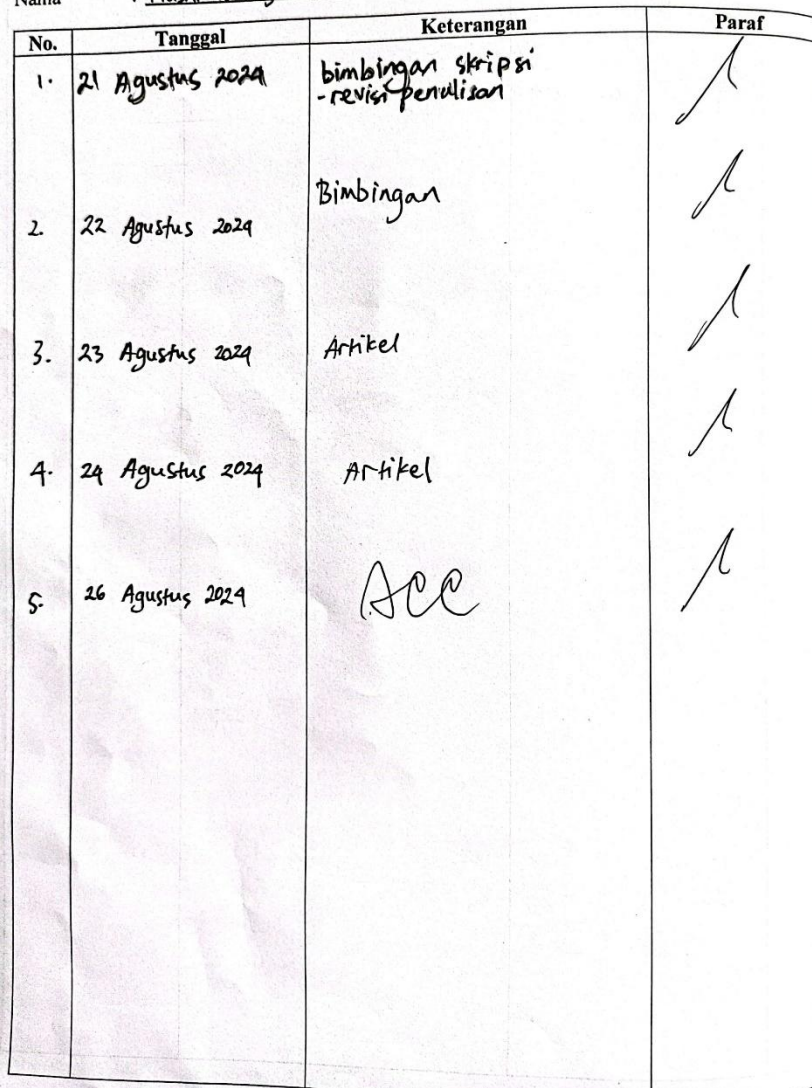 Nama :
No. Tanggal Keterangan Paraf
1. 21 Agustus 2024 bimbingan skripsi
- revisi penulisan
Bimbingan
2. 22 Agustus 2024
3. 23 Agustus 2024 Artikel
4. 24 Agustus 2024 Artikel
5. 26 Agustus 2024 ACC